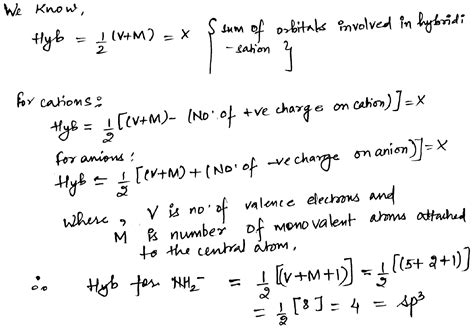 We know,
Hyb = 1/2 (V+M) = X { sum of orbitals involved in hybridi
-sation }
for cations :
Hyb = 1/2 [(V+M) - (No. of +ve charge on cation)] = X
for anions :
Hyb = 1/2 [(V+M) + (No. of -ve charge on anion)] = X
Where, V is no. of valence electrons and
M is number of monovalent atoms attached
to the central atom.
∴ Hyb for NH₂⁻ = 1/2 [(V+M+1)] = 1/2 [(5+2+1)]
= 1/2 [8] = 4 = sp³